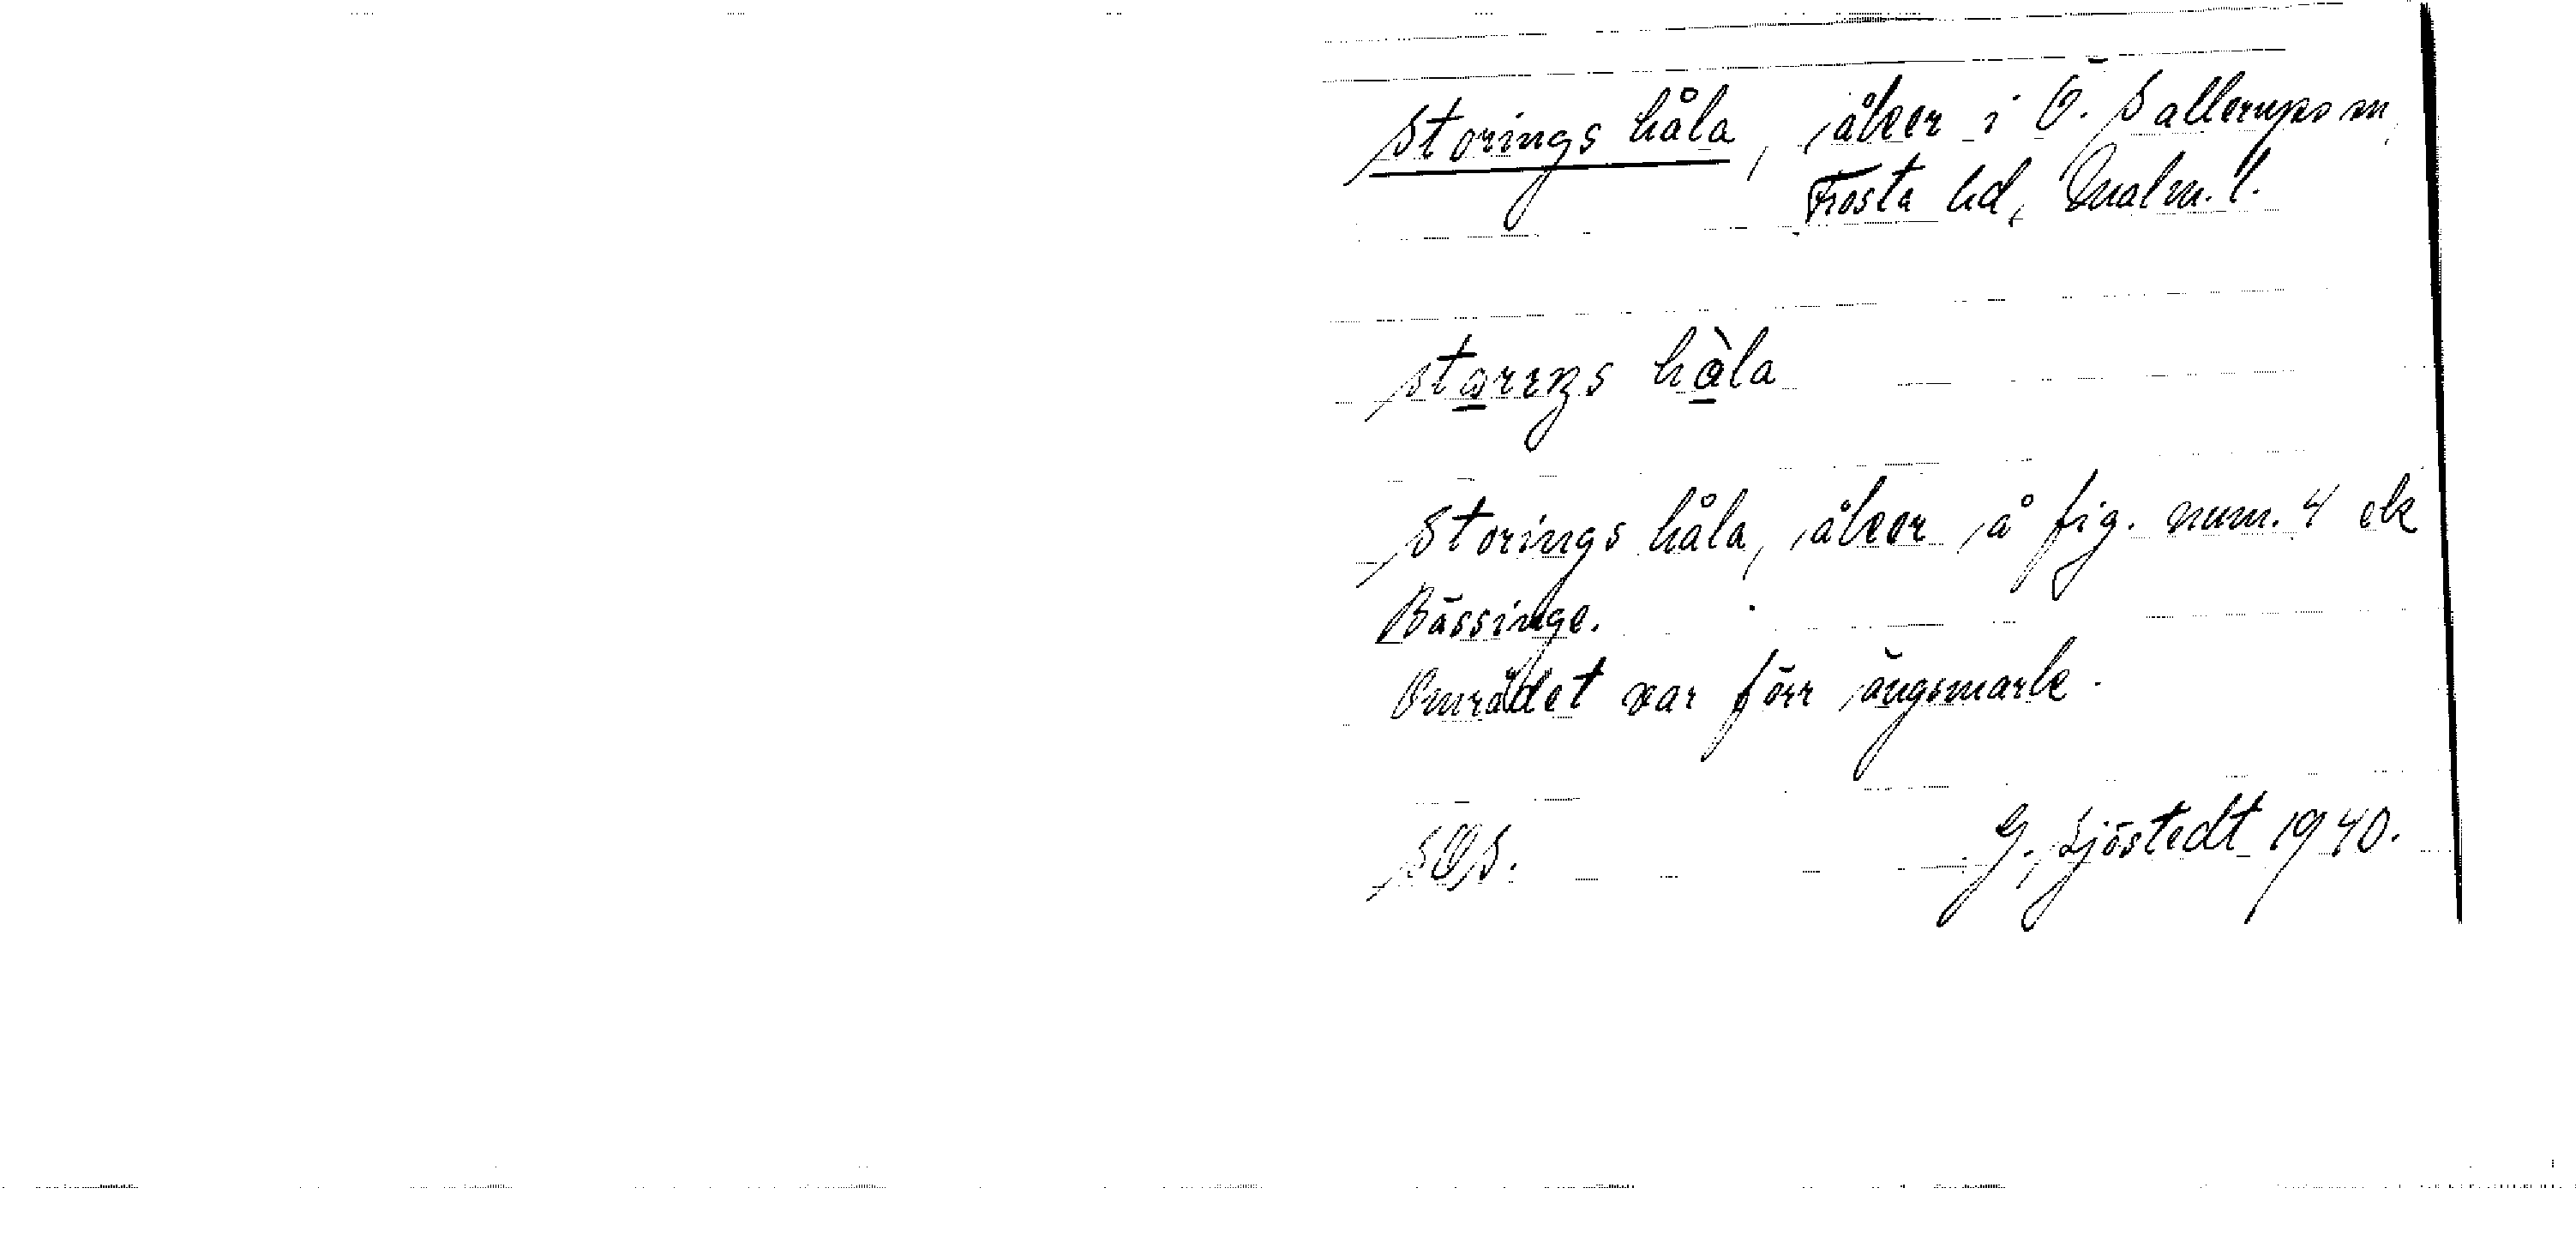 Storings håla, åker i Ö. Sallerups sn,
Frosta hd, Malm. l.
storeŋs hàla
Storings håla, åker å fig. num. 4 ek
Bässinge.
Området var förr ängsmark.
SOS. G. Sjöstedt 1940.